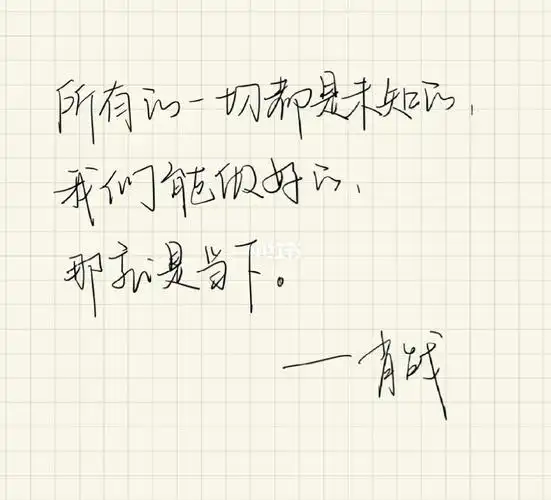 所有的一切都是未知的，
我们能做好的，
那就是当下。
——肖战